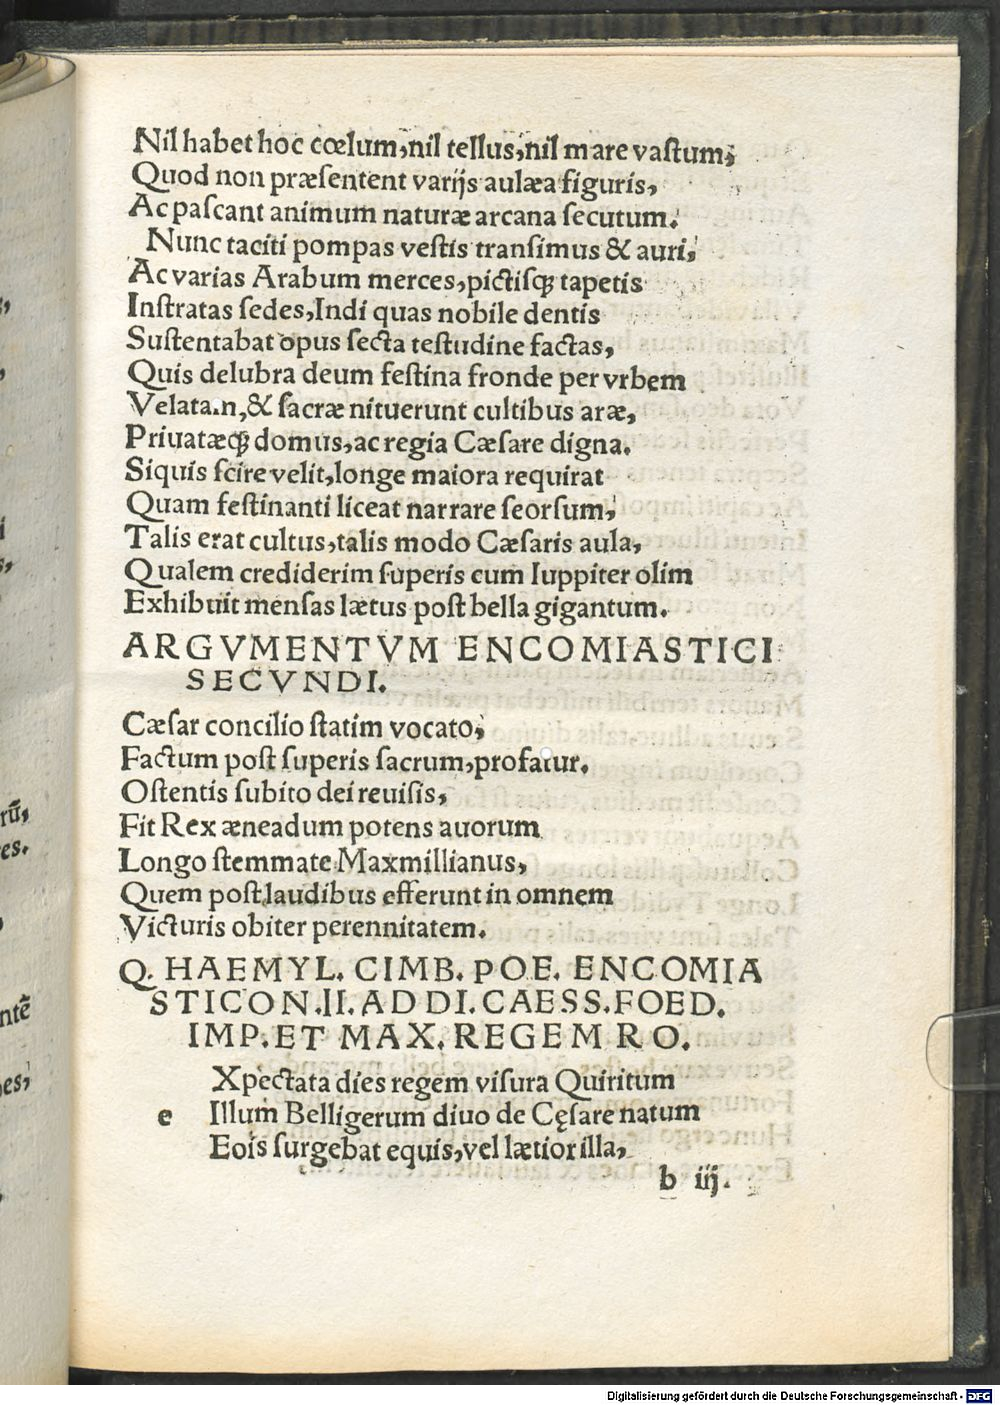 Nil habet hoc cœlum, nil tellus, nil mare vastum,
Quod non præsentent varijs aulæa figuris,
Ac pascant animum naturæ arcana secutum.
Nunc taciti pompas vestis transimus & auri,
Ac varias Arabum merces, pictisqꝫ tapetis
Instratas sedes, Indi quas nobile dentis
Sustentabat opus secta testudine factas,
Quis delubra deum festina fronde per vrbem
Velata.n, & sacræ nituerunt cultibus aræ,
Priuatæqꝫ domus, ac regia Cæsare digna.
Siquis scire velit, longe maiora requirat
Quam festinanti liceat narrare seorsum,
Talis erat cultus, talis modo Cæsaris aula,
Qualem crediderim superis cum Iuppiter olim
Exhibuit mensas lætus post bella gigantum.
ARGVMENTVM ENCOMIASTICI
SECVNDI.
Cæsar concilio statim vocato,
Factum post superis sacrum, profatur.
Ostentis subito dei reuisis,
Fit Rex æneadum potens auorum
Longo stemmate Maxmillianus,
Quem post laudibus efferunt in omnem
Victuris obiter perennitatem.
Q. HAEMYL. CIMB. POE. ENCOMIA
STICON. II. AD DI. CAESS. FOED.
IMP. ET MAX. REGEM RO.
Xpectata dies regem visura Quiritum
e Illum Belligerum diuo de Cęsare natum
Eois surgebat equis, vel lætior illa,
b iij.
rū,
es.
ntē
es,
Digitalisierung gefördert durch die Deutsche Forschungsgemeinschaft - DFG